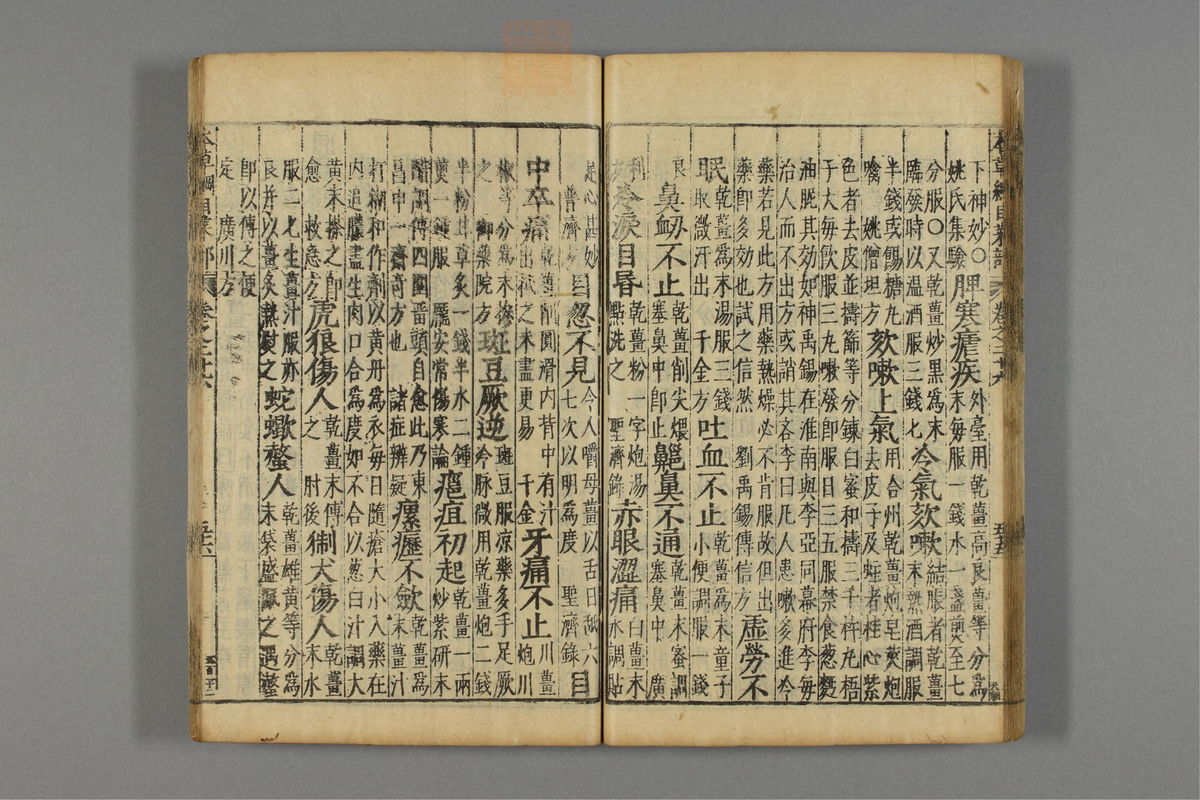 下神妙○脾寒瘧疾外臺用乾薑高良薑等分爲
末每服一錢水一盞煎至七
姚氏集驗
分服○又乾薑炒黑爲末
臨發時以溫酒服三錢匕冷氣欬嗽結脹者乾薑
末熱酒調服
半錢或餳糖丸
噙 姚僧坦方欬嗽上氣用合州乾薑炮皂莢炮
去皮子及蛀者桂心紫
色者去皮並擣篩等分鍊白蜜和擣三千杵丸梧
子大每飲服三丸嗽發即服日三五服禁食葱麪
油膩其効如神禹錫在淮南與李亞同幕府李每
治人而不出方或誚其吝李曰凡人患嗽多進冷
藥若見此方用藥熱燥必不肯服故但出
藥即多効也試之信然 劉禹錫傳信方虛勞不
眠乾薑爲末湯服三錢
取微汗出 千金方吐血不止乾薑爲末童子
小便調服一錢
良鼻衂不止乾薑削尖煨
塞鼻中即止齆鼻不通乾薑末蜜調
塞鼻中 廣
利冷淚目昏乾薑粉一字炮湯
點洗之 聖濟錄赤眼澀痛白薑末
水調貼
足心甚妙
普濟方目忽不見今人嚼母薑以舌日舐六
七次以明爲度 聖濟錄目
中卒痛乾薑削圓滑內眥中有汁
出拭之末盡更易 千金牙痛不止川薑
炮川
椒等分爲末摻
之 御藥院方斑豆厥逆斑豆服凉藥多手足厥
冷脉微用乾薑炮二錢
半粉甘草炙一錢半水二鍾
煎一鍾服 龐安常傷寒論瘡疽初起乾薑一兩
炒紫研末
醋調傅四圍畱頭自愈此乃東
昌申一齋奇方也 諸症辨疑瘰癧不歛乾薑爲
末薑汁
打糊和作劑以黃丹爲衣每日隨瘡大小入藥在
內追膿盡生肉口合爲度如不合以葱白汁調大
黃末搽之即
愈 救急方虎狼傷人乾薑末傅
之 肘後猘犬傷人乾薑
末水
服二匕生薑汁服亦
良并以薑炙熱熨之蛇蠍螫人乾薑雄黃等分爲
末袋盛佩之遇螫
即以傅之便
定 廣川方